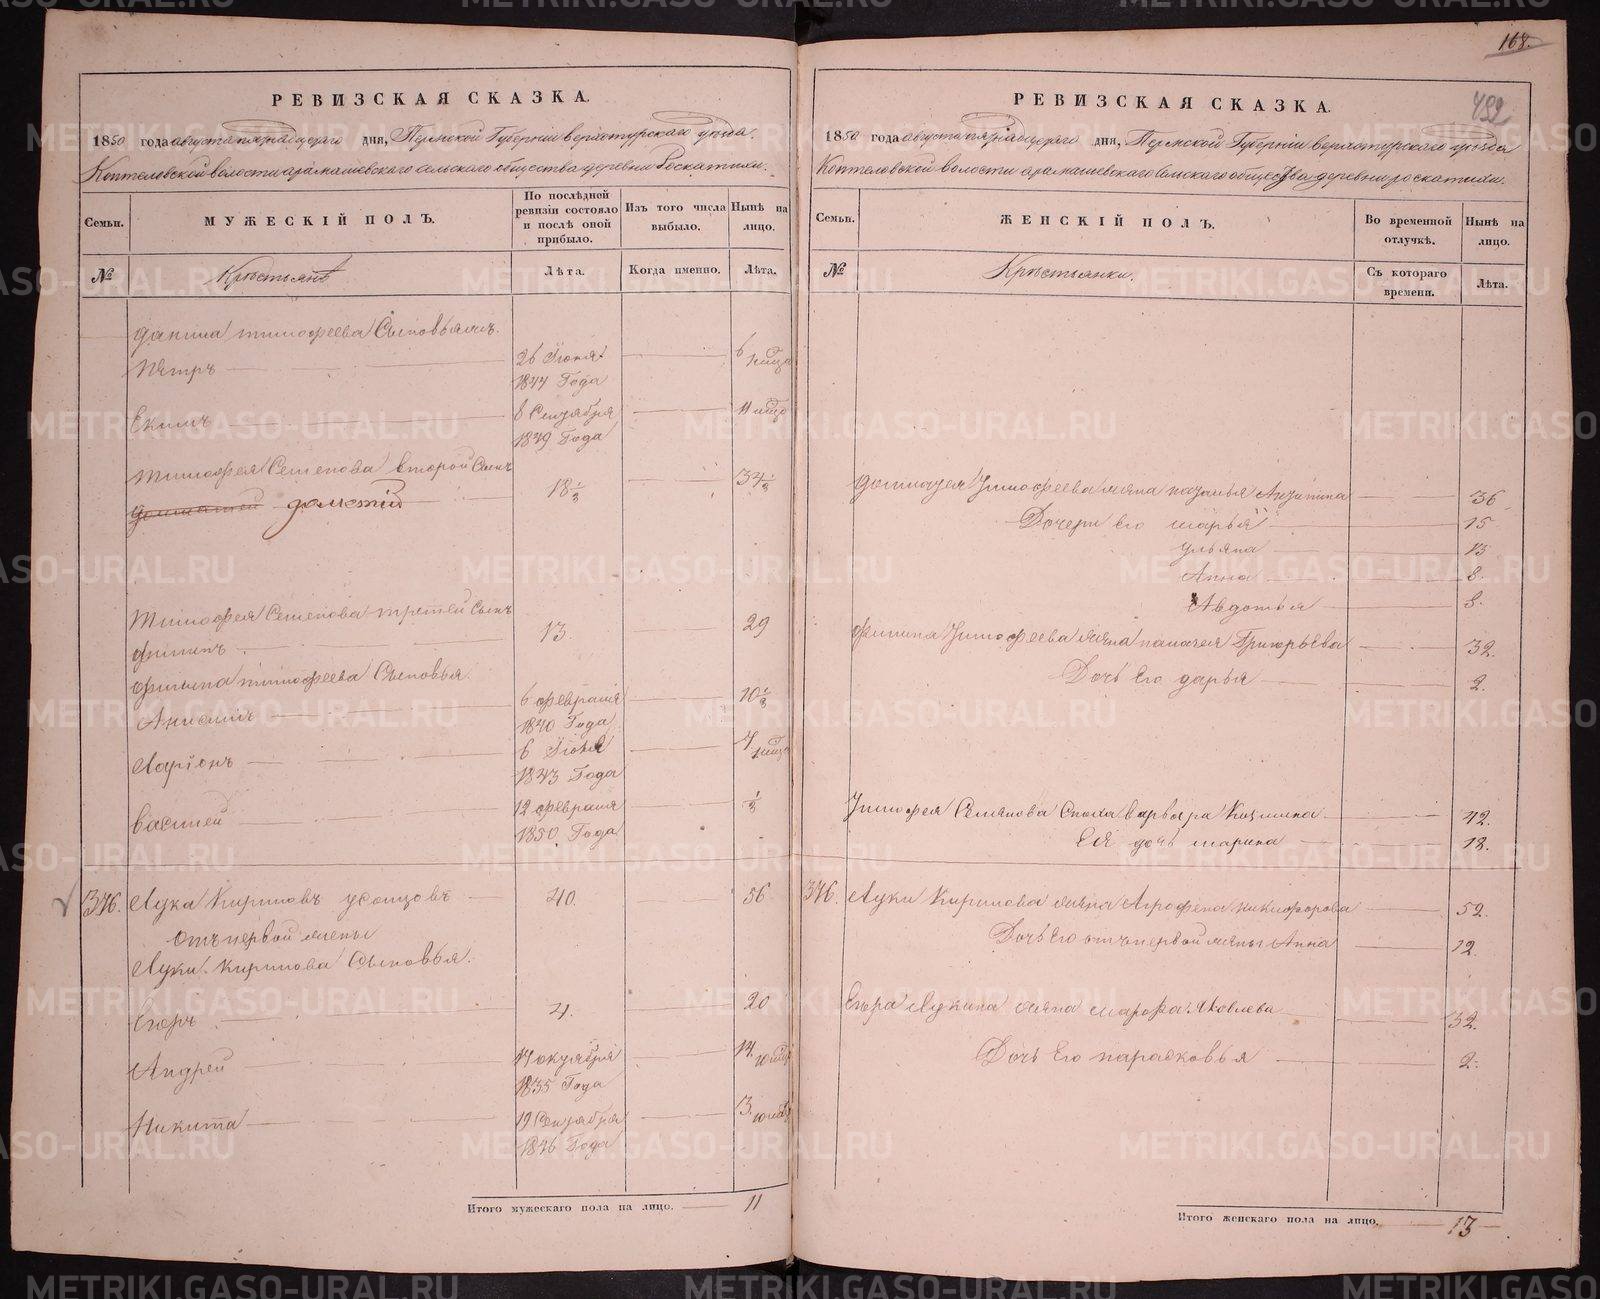 168.
492
РЕВИЗСКАЯ СКАЗКА.
1850 года августа пятнадцатого дня, Пермской Губернии верхотурского уезда
Коптеловской волости арамашевского сельского общества деревни Роскатихи.
Семьи.
МУЖЕСКІЙ ПОЛЪ.
По послѣдней ревизіи состояло и послѣ оной прибыло.
Изъ того числа выбыло.
Нынѣ на лицо.
№
Крестьяне
Лѣта.
Когда именно.
Лѣта.
данила тимофеева Сыновья
Петръ 26 Іюня 1844 Года 6
Екимъ 8 Сентября 1849 Года 11
тимофея Семенова второй Сынъ 18 1/2 34 1/2
дометій
тимофея Семенова третей Сынъ
филипъ 13. 29
филипа тимофеева Сыновья.
Анисимъ 6 февраля 1840 Года 10 1/2
Ларіонъ 6 Іюня 1843 Года 7
василей 12 февраля 1850 Года 1/2
376. Лука Кириловъ усолцовъ 40. 56
отъ первой жены
Луки Кирилова Сыновья.
Егоръ 4. 20
Андрей 14 октября 1835 Года 14.
Никита 19 Сентября 1846 Года 3.
Итого мужескаго пола на лицо. 11
РЕВИЗСКАЯ СКАЗКА.
1850 года августа пятнадцатого дня, Пермской Губерніи верхотурского уезда
Коптеловской волости арамашевского Сельского общества деревни роскатихи.
Семьи.
ЖЕНСКІЙ ПОЛЪ.
Во временной отлучкѣ.
Нынѣ на лицо.
№
Крестьянки.
Съ котораго времени.
Лѣта.
Тимофеева жена 36
Дочери Его марья 15
ульяна 13
Анна 8.
Авдотья 8.
филипа Тимофеева жена Григорьева 32.
Дочь Его дарья 2.
Тимофея Семенова Сноха варвара 42.
Ея дочь марина 18.
376. Луки Кирилова жена Агрофена никифорова 52.
Дочь Его отъ первой жены Анна 12.
Егора Лукина жена Яковлева 32.
Дочь Его парасковья 2.
Итого женскаго пола на лицо. 13
METRIKI.GASO-URAL.RU